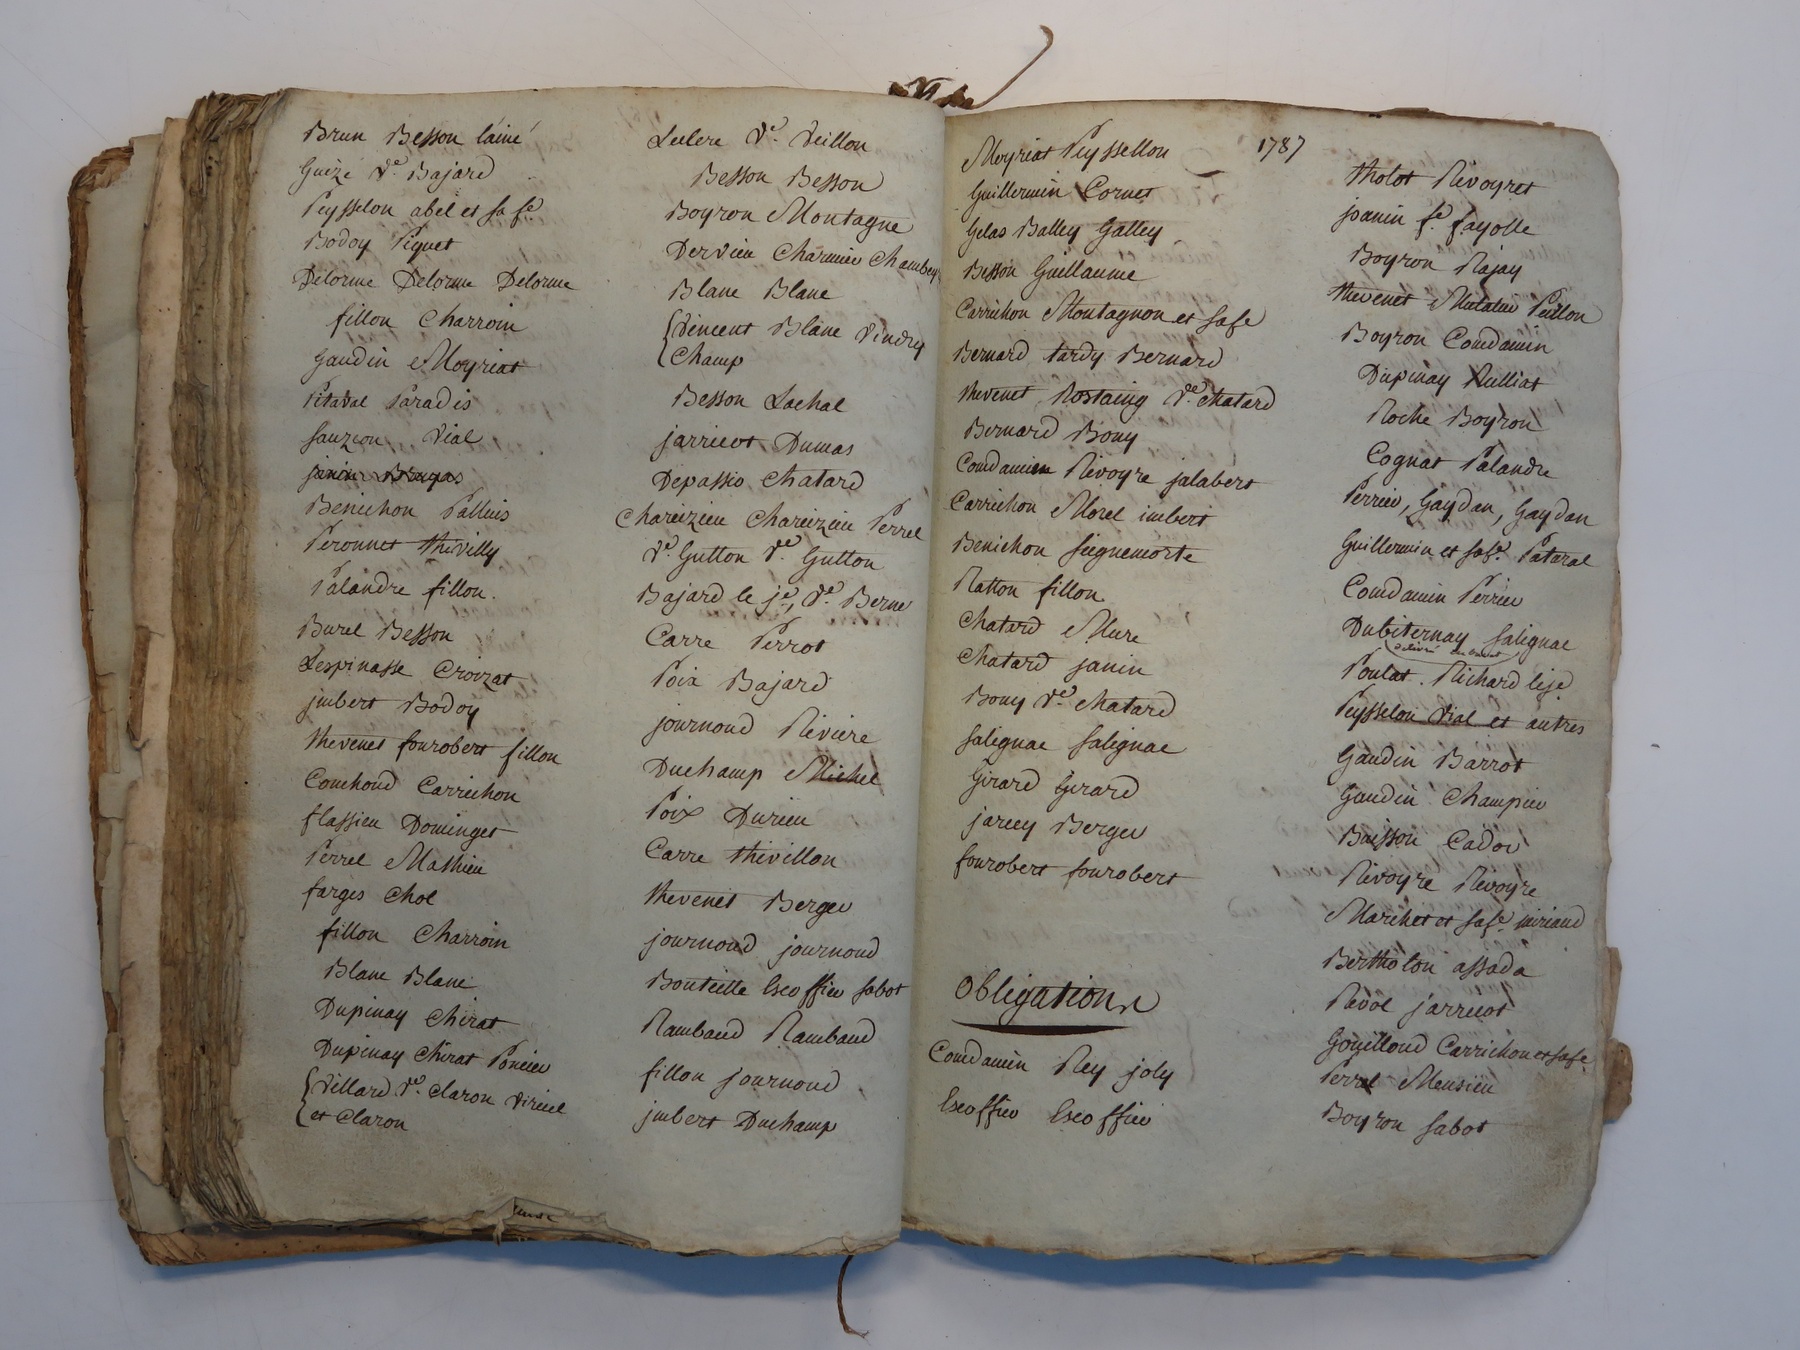 Brun Besson l'ainé
Guèze Ve. Bajard
Peysselon abel et sa fe.
Bodoy Piquet
Delorme Delorme Delorme
fillon Charroin
Gaudin Moyriat
Pitaval Paradis
Sauzion Vial
janin
Benichon Palluis
Peronnet thivilly
Palandre fillon.
Burel Besson
Lespinasse Croizat
jmbert Bodoy
thevenet fourobert fillon
Couchoud Carrichon
flassieu Dominget
Perrel Mathieu
farges Chol
fillon Charroin
Blanc Blanc
Dupinay Chirat
Dupinay Chirat Poncier
Villard Ve. Claron Viricel
et Claron
Leclerc Ve. Veillon
Besson Besson
Boyron Montagne
Dervieu Charmier
Blanc Blanc
Vincent Blanc Vindry
Champ
Besson Lachal
jarricot Dumas
Depassio Chatard
Chareizieu Chareizieu Perrel
Ve. Gutton Ve. Gutton
Bajard le je, Ve. Berne
Carre Perrot
Poix Bajard
journoud Riviere
Duchamp Michel
Poix Durieu
Carre thivillon
thevenet Berger
journoud journoud
Bouteille Escoffier Sabot
Rambaud Rambaud
fillon journoud
jmbert Duchamp
1787
Moyriat Peyssellon
Guillermin Cornet
Gelas Balley Galley
Besson Guillaume
Carrichon Montagnon et sa fe
Bernard tardy Bernard
thevenet Rostaing Ve. Chatard
Bernard Bony
Condamin Rivoyre jalabert
Carrichon Morel imbert
Benichon Seignemorte
Ratton fillon
Chatard Mure
Chatard janin
Bony Ve. Chatard
Salignac Salignac
Girard Girard
jarcey Berger
fourobert fourobert
Obligations
Condamin Rey joly
Escoffier Escoffier
tholot Rivoyret
joanin fe. fayolle
Boyron Rajay
thevenet Pullon
Boyron Condamin
Dupinay Rulliat
Roche Boyron
Cognat Palandre
Perrier, Gaydan, Gaydan
Guillermin et sa fe. Pataral
Condamin Perrier
Dubiternay Salignac
Poulat Richard le je
Peysselon Vial et autres
Gaudin Barrot
Gaudin Champier
Buisson Cador
Rivoyre Rivoyre
Marchet et sa fe.
Bertholon assada
Revol jarricot
Gouilloud Carrichon et sa fe.
Perrel Mensieu
Boyron Sabot